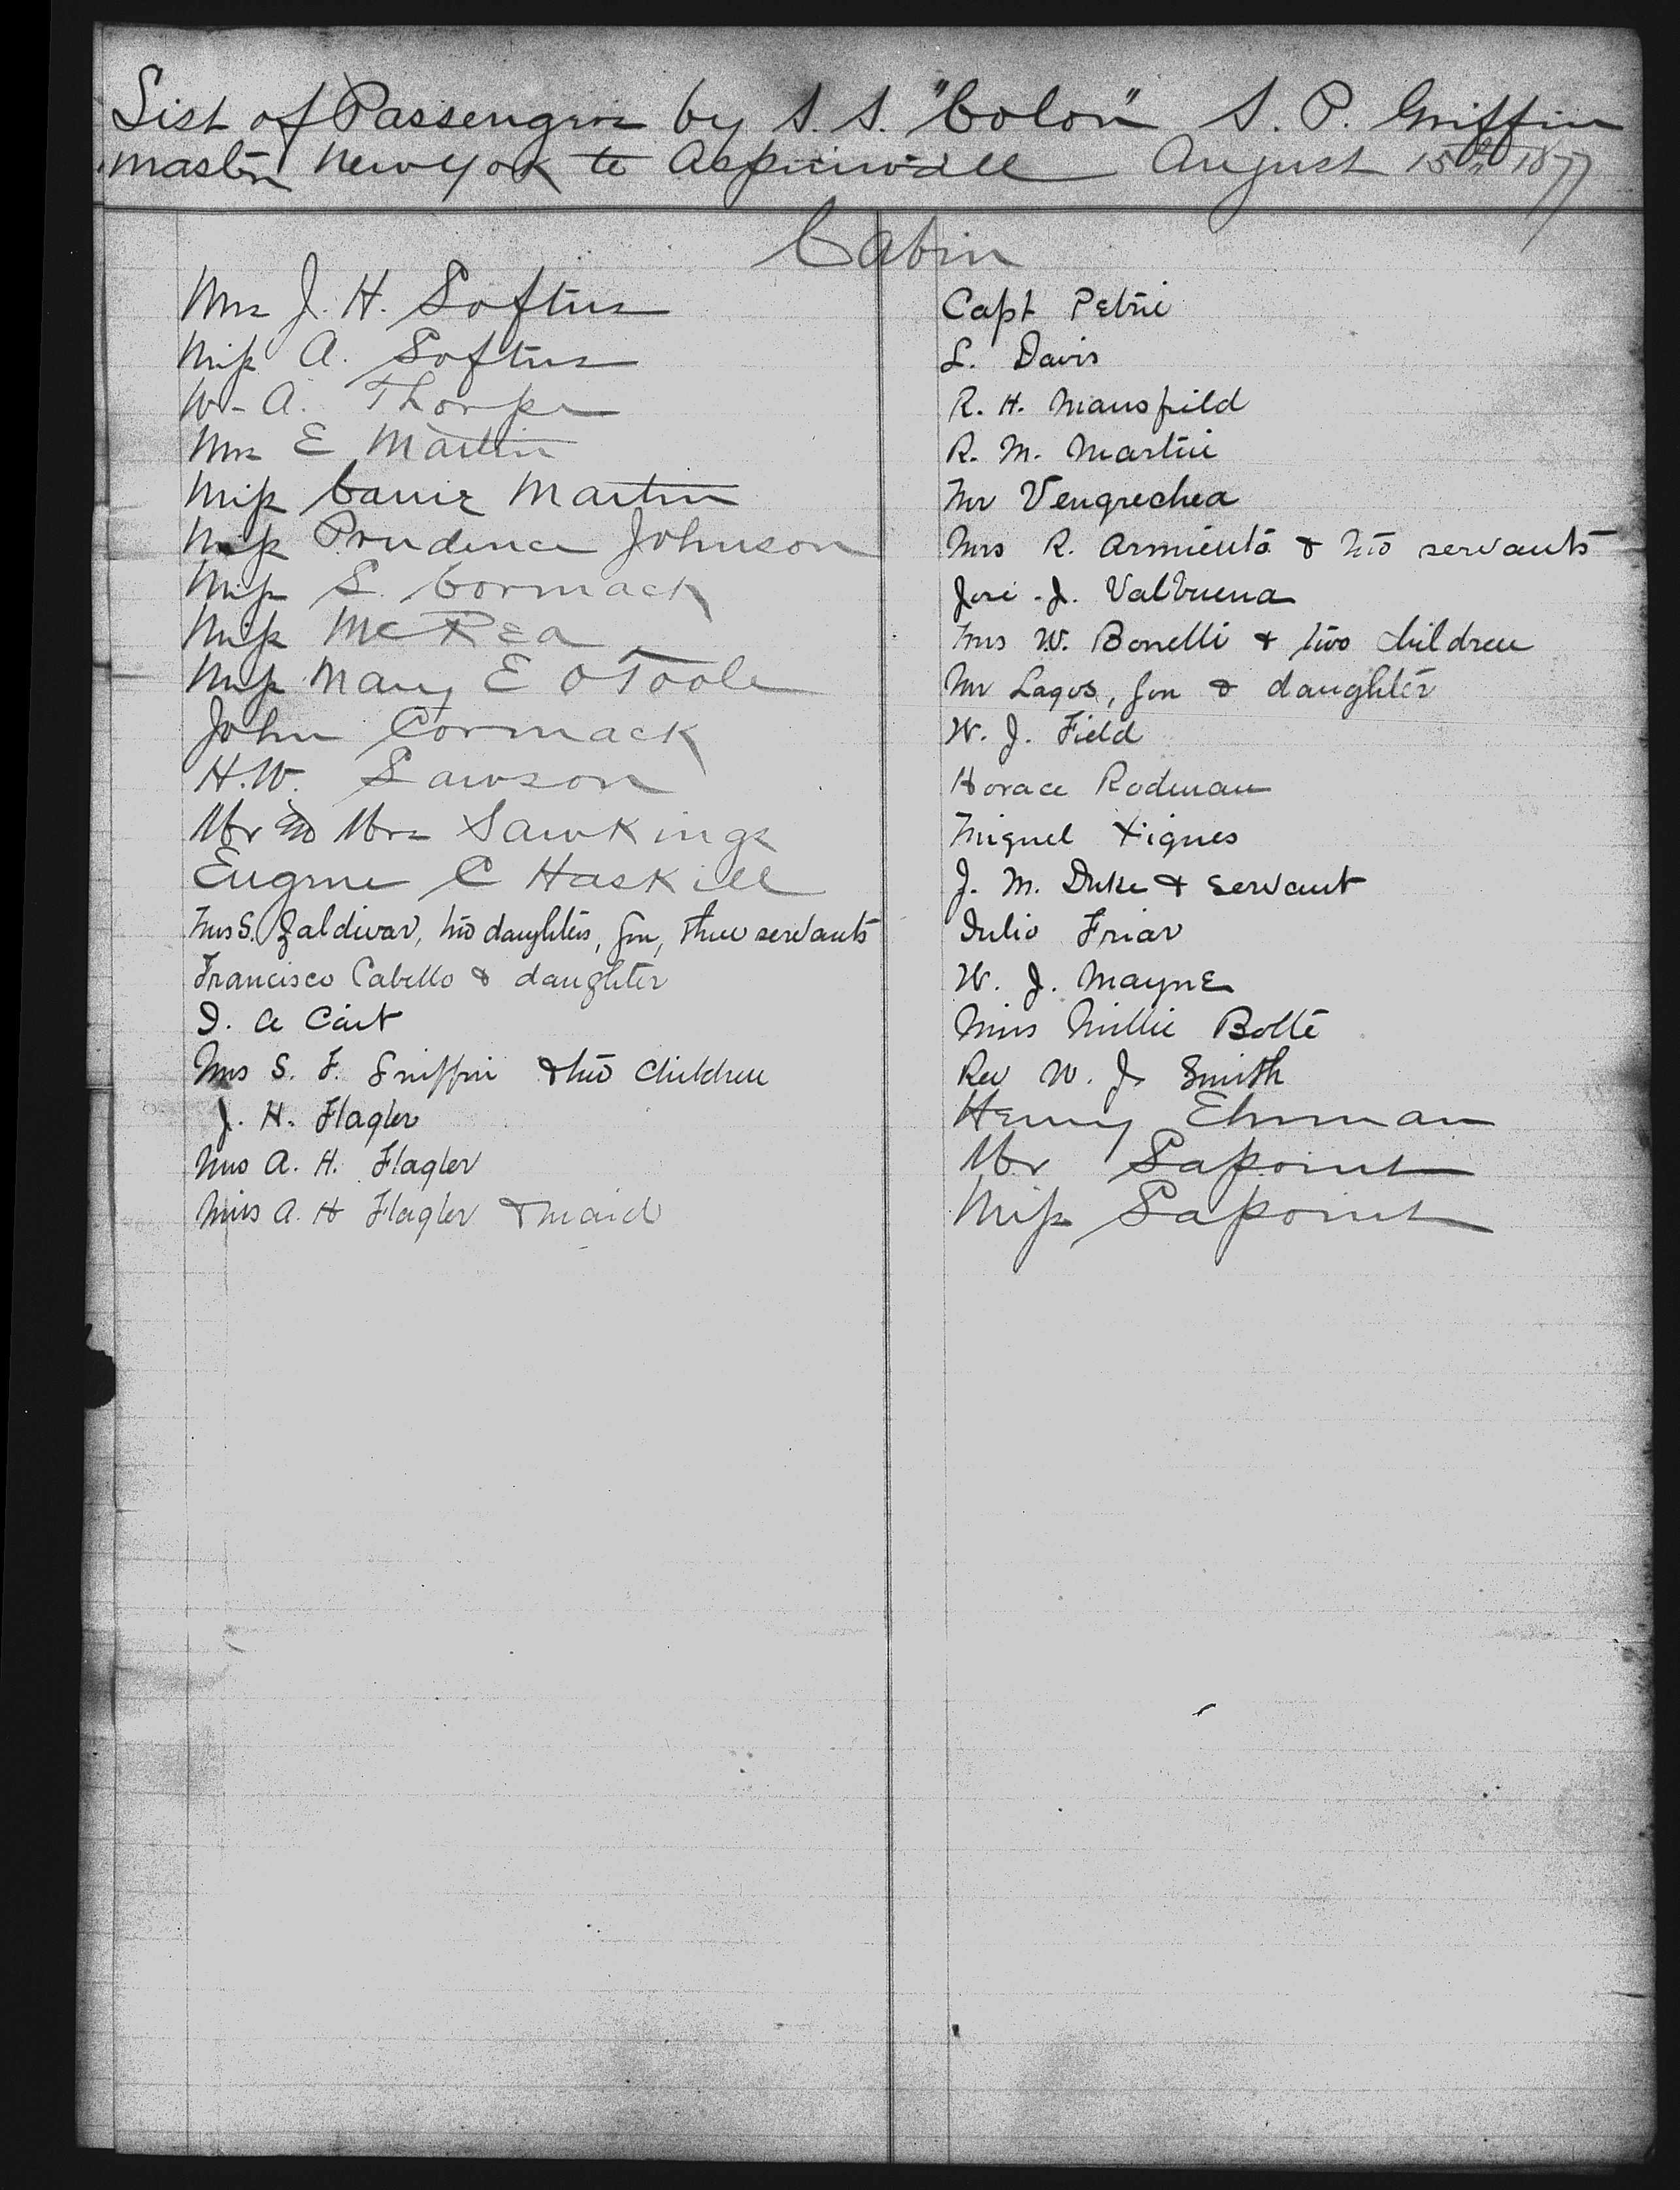 List of Passengers by S. S. "Colon" S. P. Griffin
Master New York to Aspinwall August 15th 1877
Cabin
Mrs J. H. Loftus
Miss A. Loftus
W. A. Thorpe
Mrs E Martin
Miss Carrie Martin
Miss Prudence Johnson
Miss L. Cormack
Miss McRea
Miss Mary E OToole
John Cormack
H. W. Lawson
Mr & Mrs Sawkings
Eugene C Haskill
Mrs S. Zaldivar, two daughters, son, three servants
Francisco Cabello & daughter
I. A
Mrs S. F. Sniffin & two children
J. H. Flagler
Mrs A. H. Flagler
Miss A. H Flagler & maid
Capt Petrie
L. Davis
R. H. Mansfield
R. M. Martin
Mr Vengrechea
Mrs R. Armiento & two servants
José J. Valbuena
Mrs W. Bonelli & two children
Mr Lagos, son & daughter
W. J. Field
Horace Rodman
Miguel
J. M. Duke & servant
Julio Friar
W. J. Mayne
Miss Millie Bolte
Rev W. J. Smith
Henry Ehrman
Mr Lapoint
Miss Lapoint